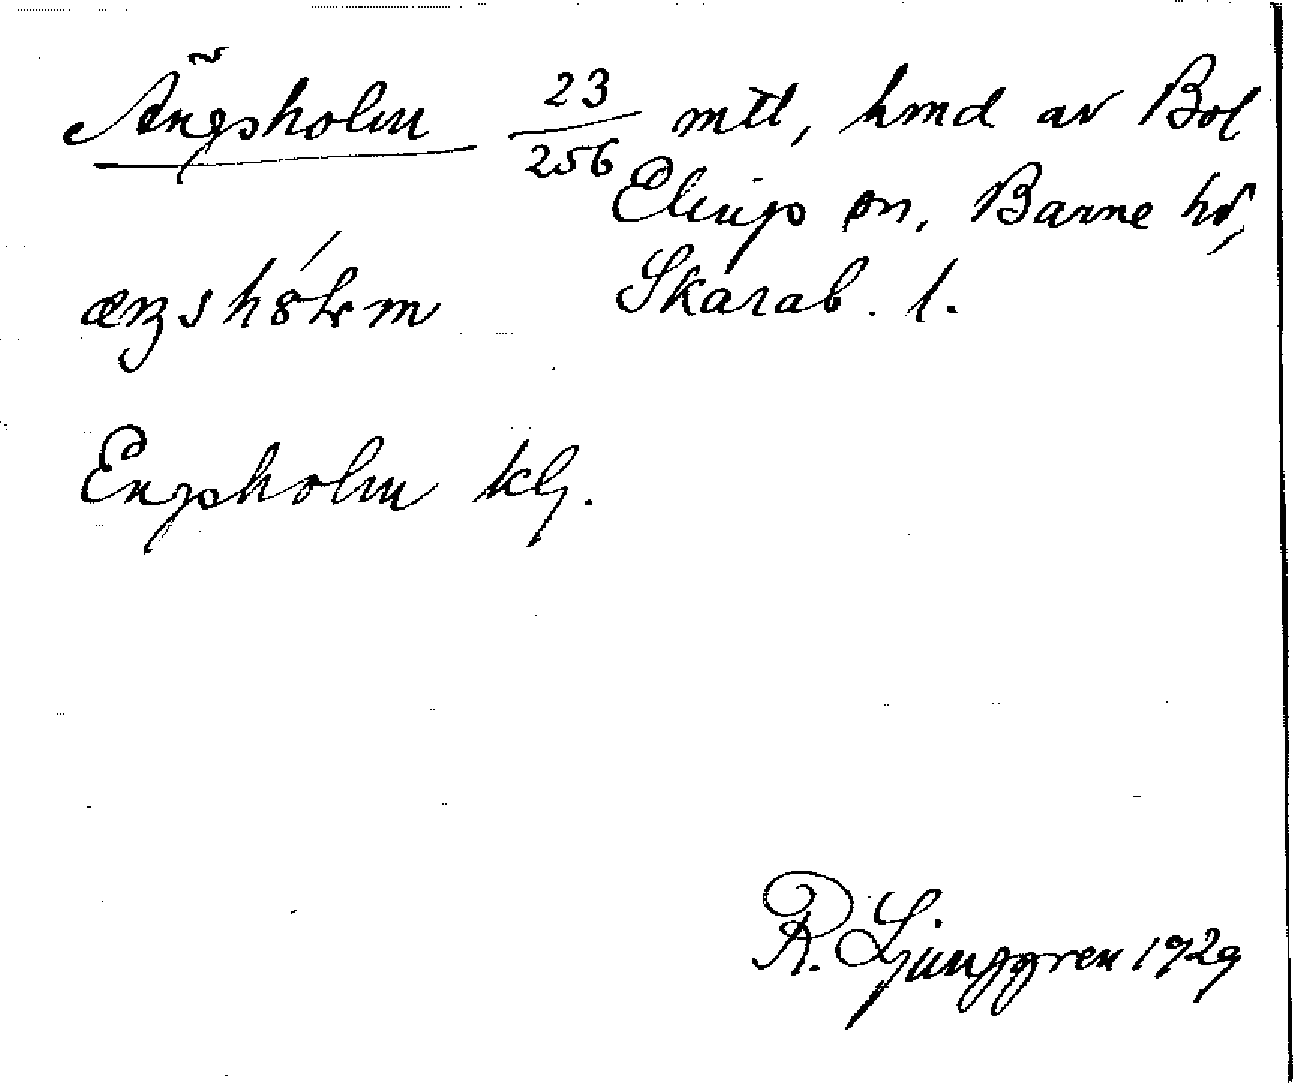 Ängsholm 23/256 mtl, hmd av Bol
Elings sn, Barne hd,
Skarab. l.
Engsholm kbj.
R. Ljunggren 1929